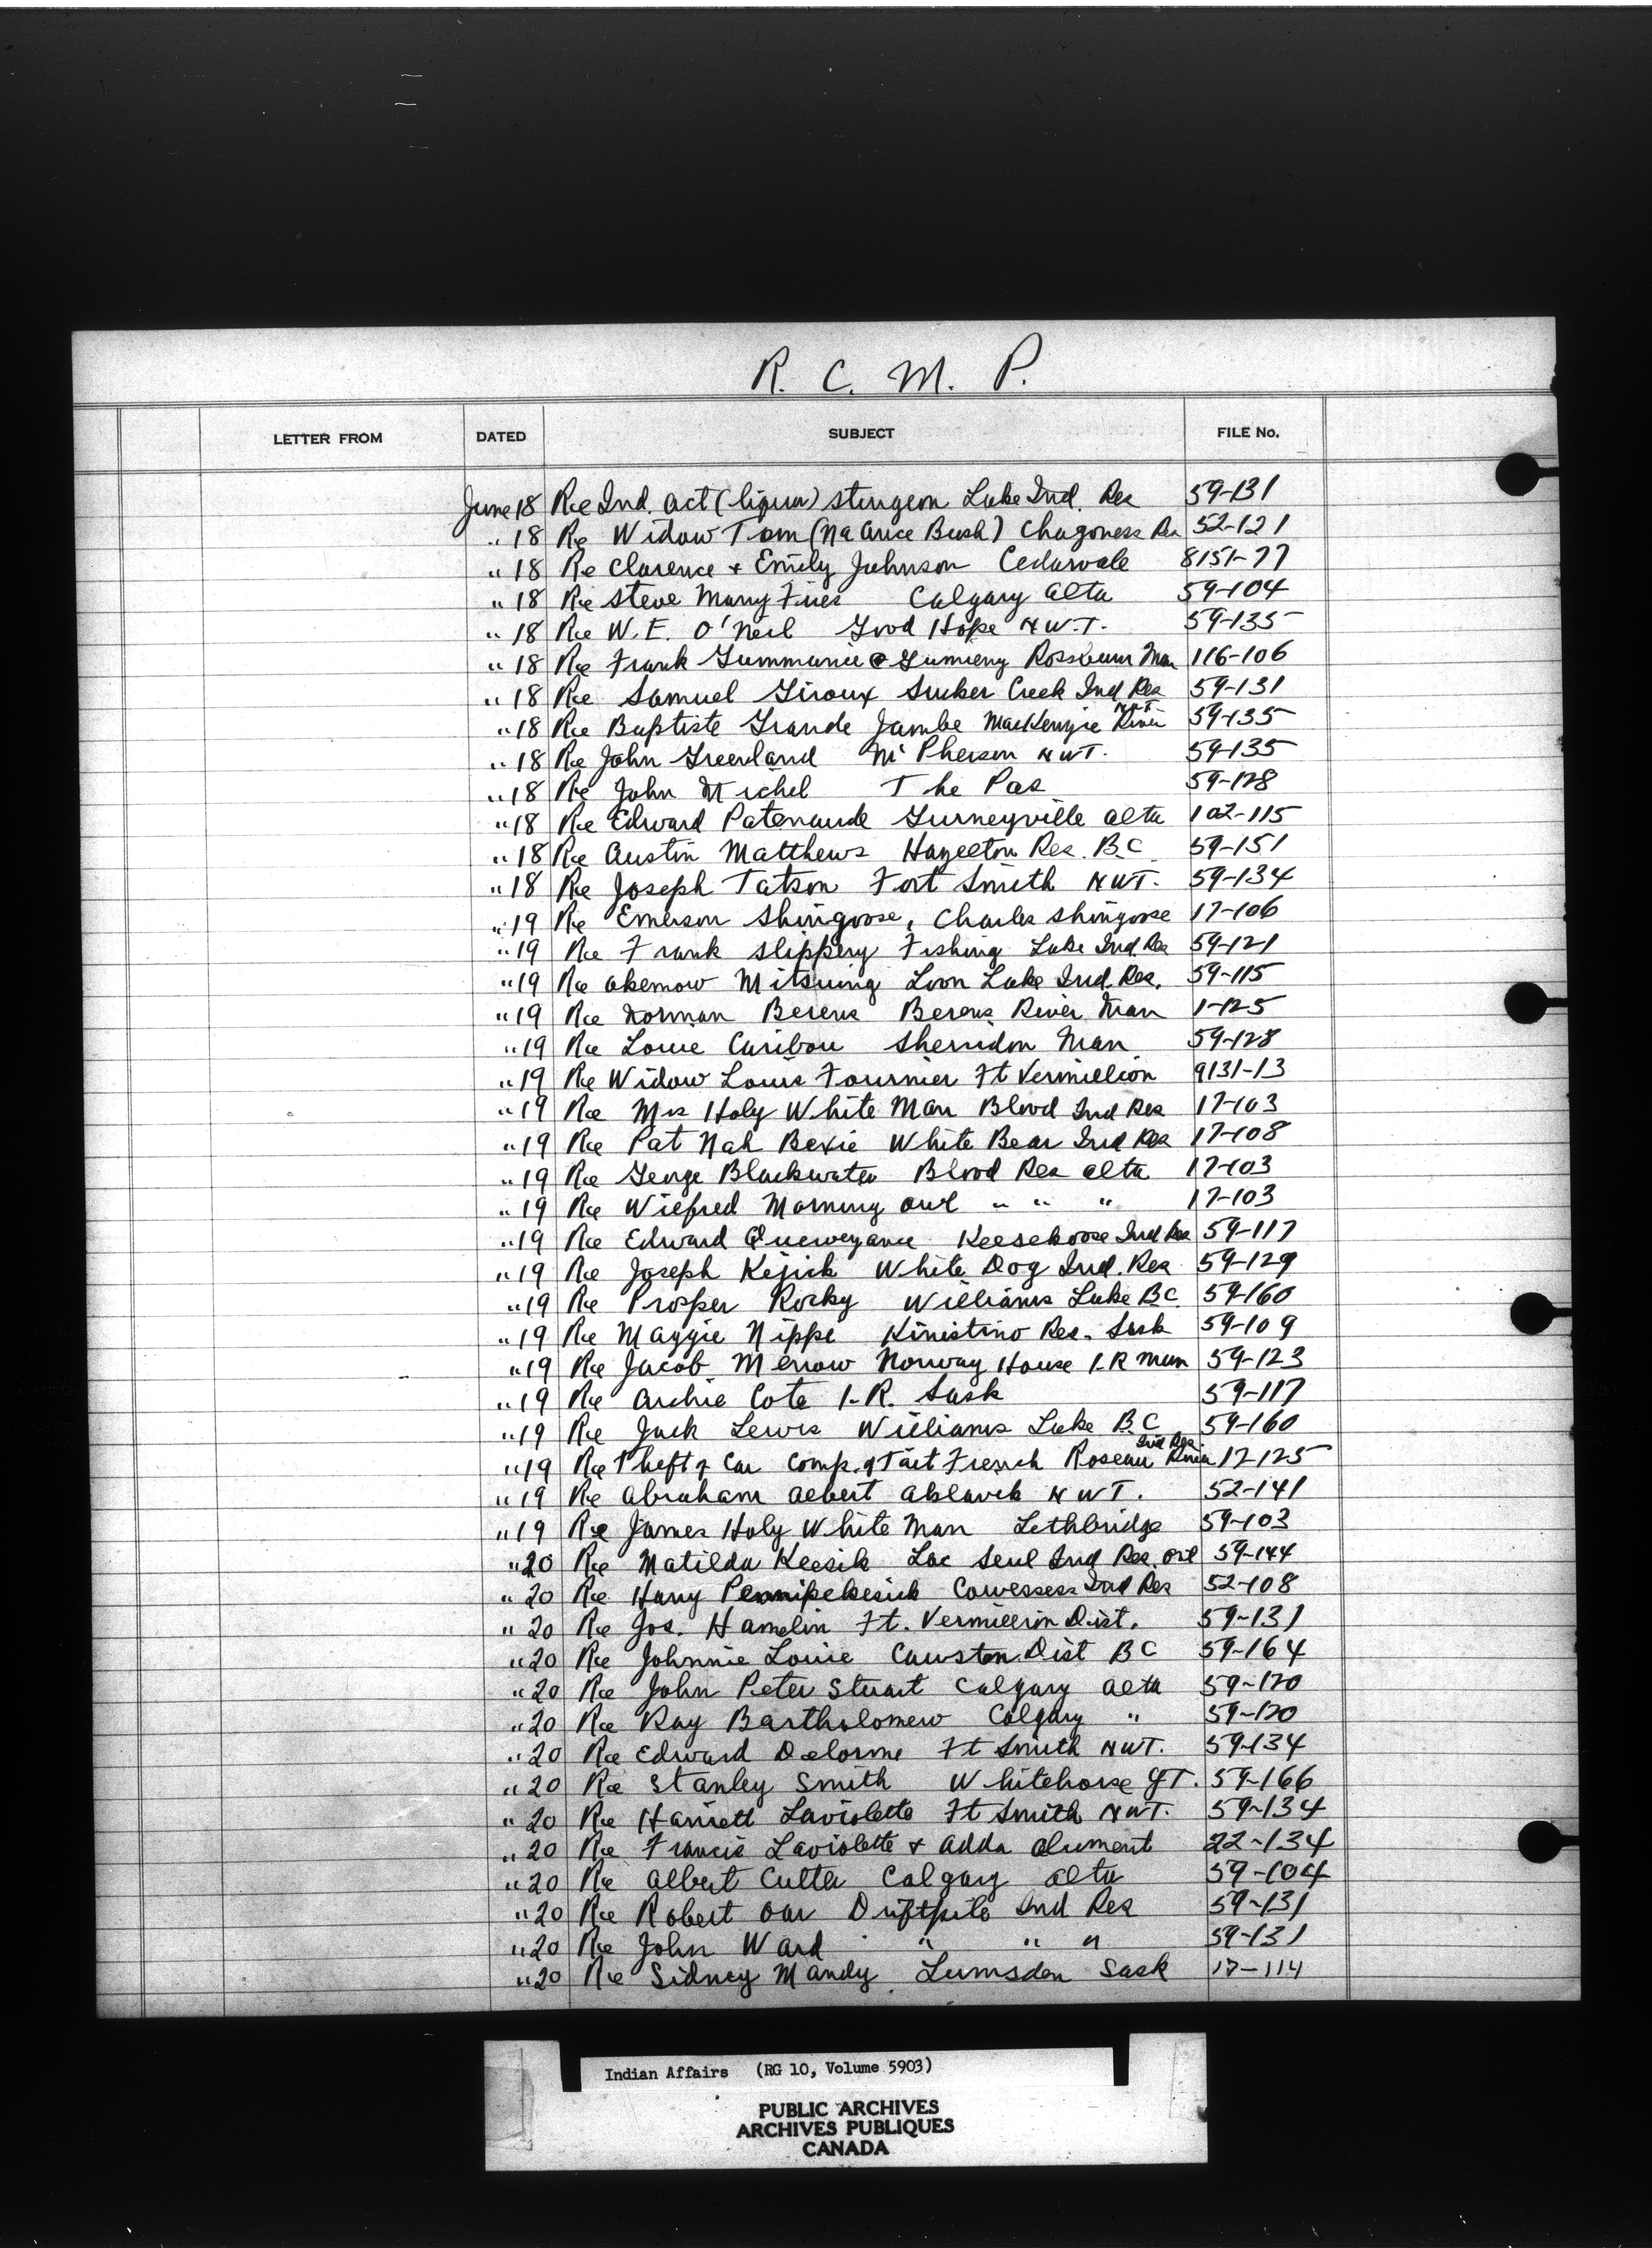 R. C. M. P.
LETTER FROM DATED SUBJECT FILE No.
June 18 Re Ind. Act (liquor) Sturgeon Lake Ind. Res 59-131
" 18 Re Widow Tom (Bush) Chagoness Res 52-121
" 18 Re Clarence + Emily Johnson Cedarvale 8151-77
" 18 Re Steve Many Fires Calgary Alta 59-104
" 18 Re W. E. O'Neil Good Hope N.W.T. 59-135
" 18 Re Frank Rossburn Man 116-106
" 18 Re Samuel Giroux Sucker Creek Ind Res 59-131
" 18 Re Baptiste Grande Jambe MacKenzie River N.W.T. 59-135
" 18 Re John Greenland McPherson N.W.T. 59-135
" 18 Re John Michel The Pas 59-128
" 18 Re Edward Patenaude Gurneyville Alta 102-115
" 18 Re Austin Matthews Hazelton Res. B.C 59-151
" 18 Re Joseph Tatson Fort Smith N.W.T. 59-134
" 19 Re Emerson Shingoose, Charles Shingoose 17-106
" 19 Re Frank Slippery Fishing Lake Ind. Res 59-121
" 19 Re Okemow Mitsuing Loon Lake Ind. Res. 59-115
" 19 Re Norman Berens Berens River Man 1-125
" 19 Re Louie Caribou Sherridon Man 59-128
" 19 Re Widow Louis Fournier Ft Vermillion 9131-13
" 19 Re Mrs Holy White Man Blood Ind Res 17-103
" 19 Re Pat Nah Bexie White Bear Ind Res 17-108
" 19 Re George Blackwater Blood Res Alta 17-103
" 19 Re Wilfred Morning Owl " " " 17-103
" 19 Re Edward Quewezance Keesekoose Ind Res 59-117
" 19 Re Joseph Kejick White Dog Ind. Res 59-129
" 19 Re Prosper Rocky Williams Lake B.C. 59-160
" 19 Re Maggie Nippi Kinistino Res. Sask 59-109
" 19 Re Jacob Menow Norway House I.R Man 59-123
" 19 Re Archie Cote I.R. Sask 59-117
" 19 Re Jack Lewis Williams Lake B.C 59-160
" 19 Re Theft of Car Comp. of Tait French Roseau River Ind Res. 17-125
" 19 Re Abraham Albert Aklavik N.W.T. 52-141
" 19 Re James Holy White Man Lethbridge 59-103
" 20 Re Matilda Keesik Lac Seul Ind Res. Ont 59-144
" 20 Re Harry Pennipekesick Cowessess Ind Res 52-108
" 20 Re Jos. Hamelin Ft. Vermillion Dist. 59-131
" 20 Re Johnnie Louie Cawston Dist BC 59-164
" 20 Re John Peter Stuart Calgary Alta 59-120
" 20 Re Ray Bartholomew Calgary " 59-120
" 20 Re Edward Delorme Ft Smith N.W.T. 59-134
" 20 Re Stanley Smith Whitehorse Y.T. 59-166
" 20 Re Harriett Laviolette Ft Smith N.W.T. 59-134
" 20 Re Francis Laviolette + Adda 22-134
" 20 Re Albert Cutter Calgary Alta 59-104
" 20 Re Robert Oar Driftpile Ind Res 59-131
" 20 Re John Ward " " " 59-131
" 20 Re Sidney Mandy Lumsden Sask 17-114
Indian Affairs (RG 10, Volume 5903)
PUBLIC ARCHIVES
ARCHIVES PUBLIQUES
CANADA